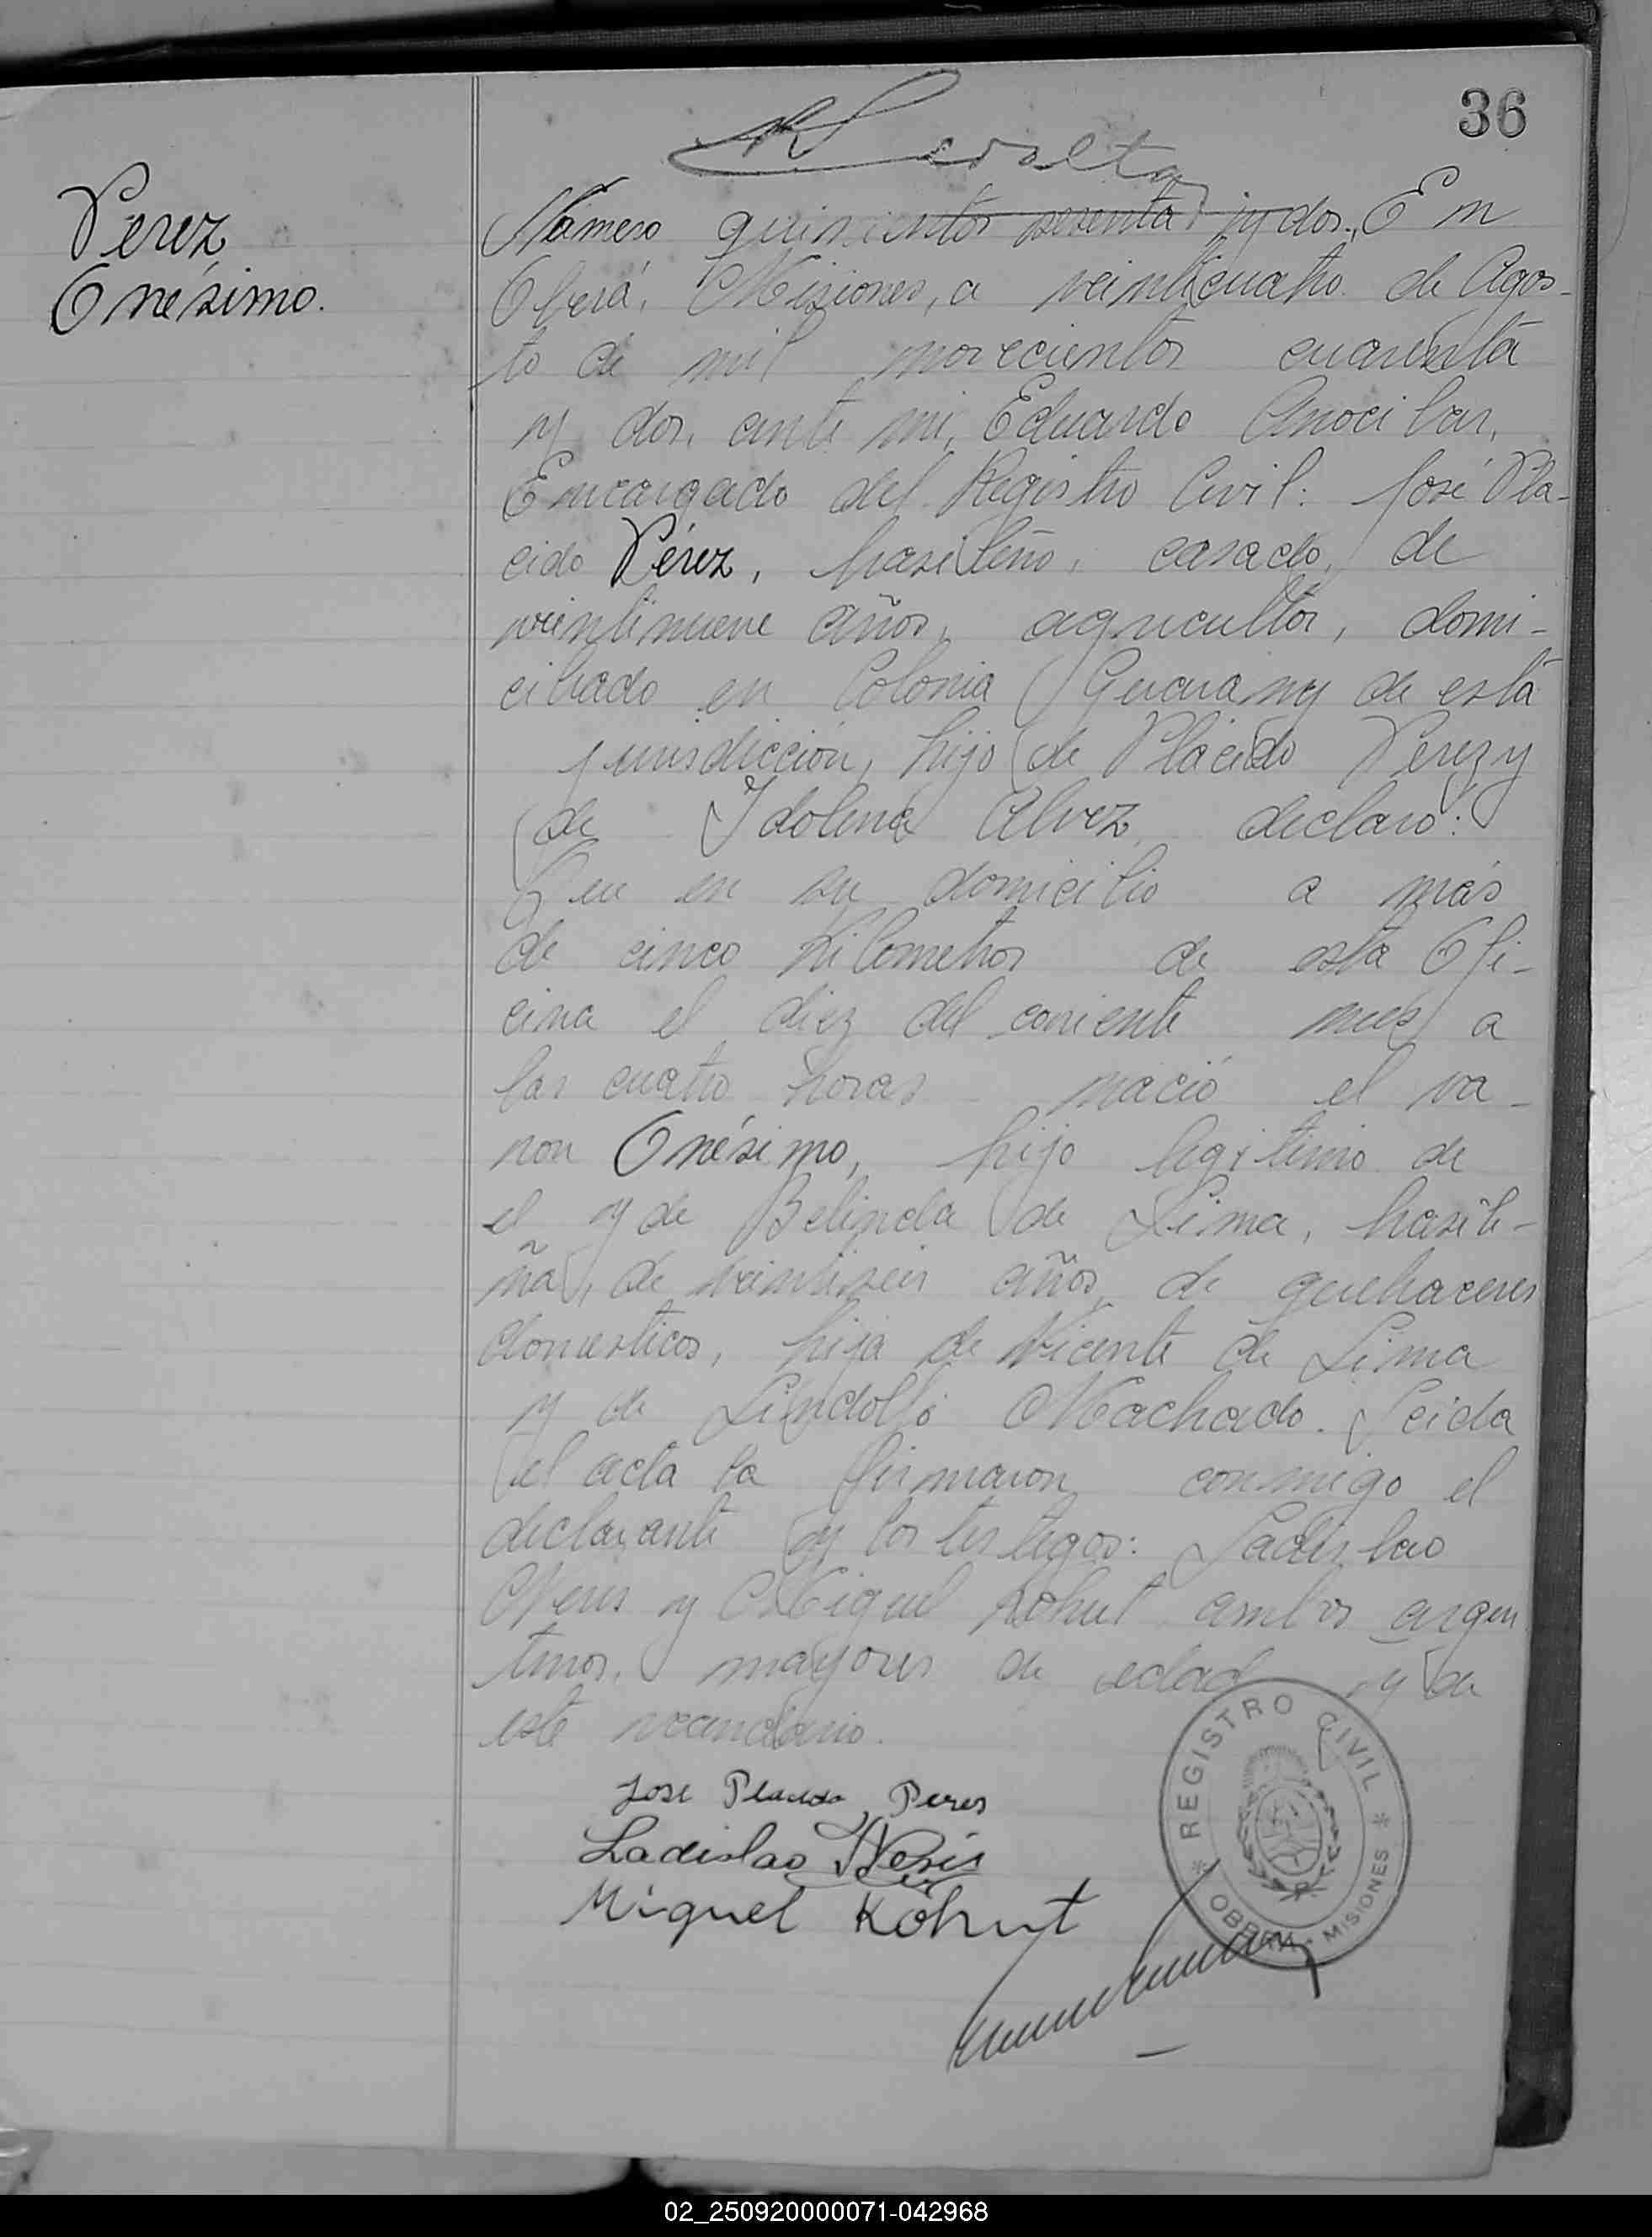 36
Perez
Onésimo.
Número quinientos sesenta y dos. En
Oberá, Misiones, a veinticuatro de Agos-
to de mil novecientos cuarenta
y dos, ante mi, Eduardo Anocibar,
Encargado del Registro Civil: José Pla-
cido Pérez, brasileño, casado, de
veintinueve años, agricultor, domi-
ciliado en Colonia Guarany de está
jurisdicción, hijo de Plácido Perez y
de Idolina Alvez, declaró:
Que en su domicilio a más
de cinco kilometros de esta Ofi-
cina el diez del corriente mes a
las cuatro horas nació el va-
ron Onésimo, hijo legitimo de
el y de Belinda de Lima, brasile-
ña, de veintiseis años, de quehaceres
domesticos, hija de Vicente de Lima
y de Lindolfo Machado. Leida
el acta la firmaron conmigo el
declarante y los testigos: Ladislao
Neris y Miguel Kohut ambos argen
tinos, mayores de edad y de
este vecindario.
Jose Placido Peres
Ladislao Neris
Miguel Kohut
REGISTRO CIVIL
* OBERA - MISIONES *
02_250920000071-042968